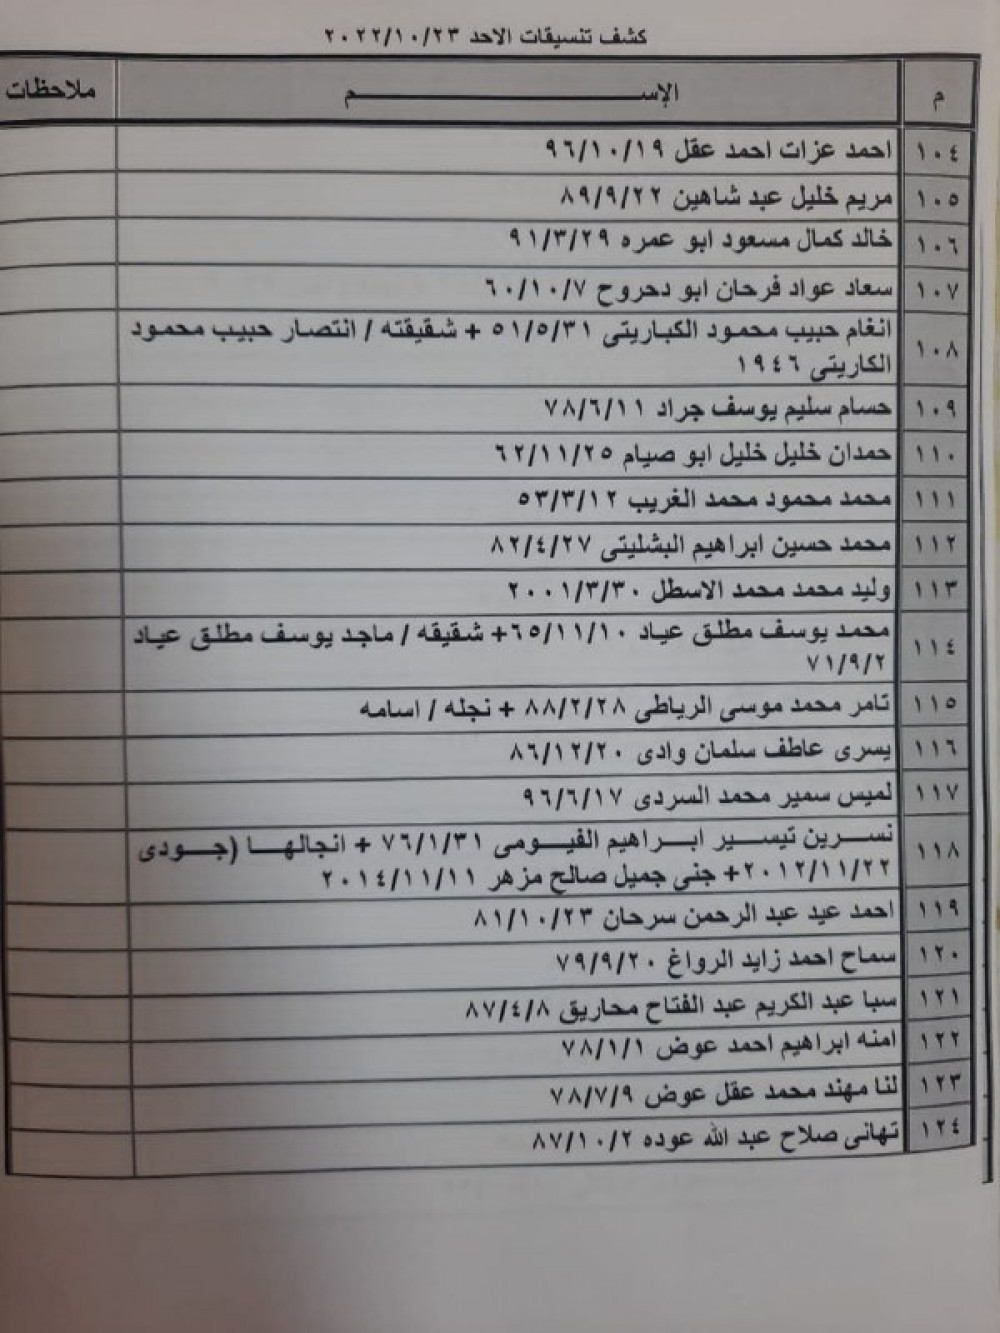 كشف تنسيقات الاحد ٢٠٢٢/١٠/٢٣
م الإســـــــــم ملاحظات
١٠٤ احمد عزات احمد عقل ٩٦/١٠/١٩
١٠٥ مريم خليل عبد شاهين ٨٩/٩/٢٢
١٠٦ خالد كمال مسعود ابو عمره ٩١/٣/٢٩
١٠٧ سعاد عواد فرحان ابو دحروح ٦٠/١٠/٧
١٠٨ انغام حبيب محمود الكباريتى ٥١/٥/٣١ + شقيقته / انتصار حبيب محمود
الكاريتى ١٩٤٦
١٠٩ حسام سليم يوسف جراد ٧٨/٦/١١
١١٠ حمدان خليل خليل ابو صيام ٦٢/١١/٢٥
١١١ محمد محمود محمد الغريب ٥٣/٣/١٢
١١٢ محمد حسين ابراهيم البشليتى ٨٢/٤/٢٧
١١٣ وليد محمد محمد الاسطل ٢٠٠١/٣/٣٠
١١٤ محمد يوسف مطلق عياد ٦٥/١١/١٠+ شقيقه / ماجد يوسف مطلق عياد
٧١/٩/٢
١١٥ تامر محمد موسى الرياطى ٨٨/٢/٢٨ + نجله / اسامه
١١٦ يسرى عاطف سلمان وادى ٨٦/١٢/٢٠
١١٧ لميس سمير محمد السردى ٩٦/٦/١٧
١١٨ نسرين تيسير ابراهيم الفيومى ٧٦/١/٣١ + انجالها (جودى
٢٠١٢/١١/٢٢+ جنى جميل صالح مزهر ٢٠١٤/١١/١١
١١٩ احمد عيد عبد الرحمن سرحان ٨١/١٠/٢٣
١٢٠ سماح احمد زايد الرواغ ٧٩/٩/٢٠
١٢١ سبا عبد الكريم عبد الفتاح محاريق ٨٧/٤/٨
١٢٢ امنه ابراهيم احمد عوض ٧٨/١/١
١٢٣ لنا مهند محمد عقل عوض ٧٨/٧/٩
١٢٤ تهانى صلاح عبد الله عوده ٨٧/١٠/٢